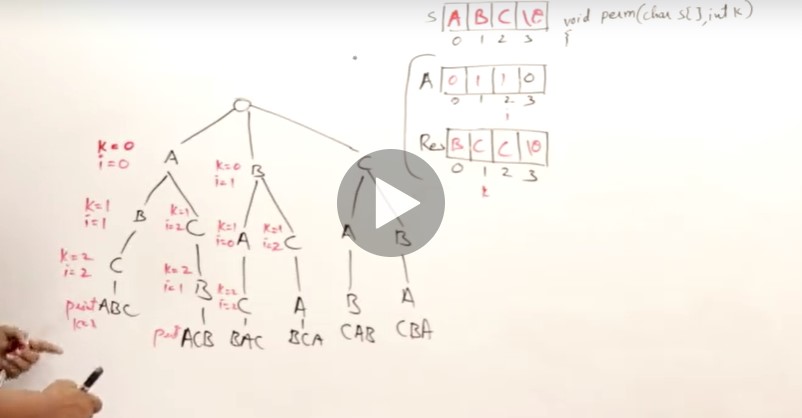 S A B C \0 void perm(char s[], int k)
0 1 2 3 {
A 0 1 1 0
0 1 2 3
i
Res B C C \0
0 1 2 3
k
k=0
i=0
A
k=0
i=1
B
C
k=1
i=1
B
k=1
i=2
C
k=1
i=0
A
k=1
i=2
C
A
B
k=2
i=2
C
k=2
i=1
B
k=2
i=2
C
A
B
A
print ABC
k=3
print ACB BAC BCA CAB CBA